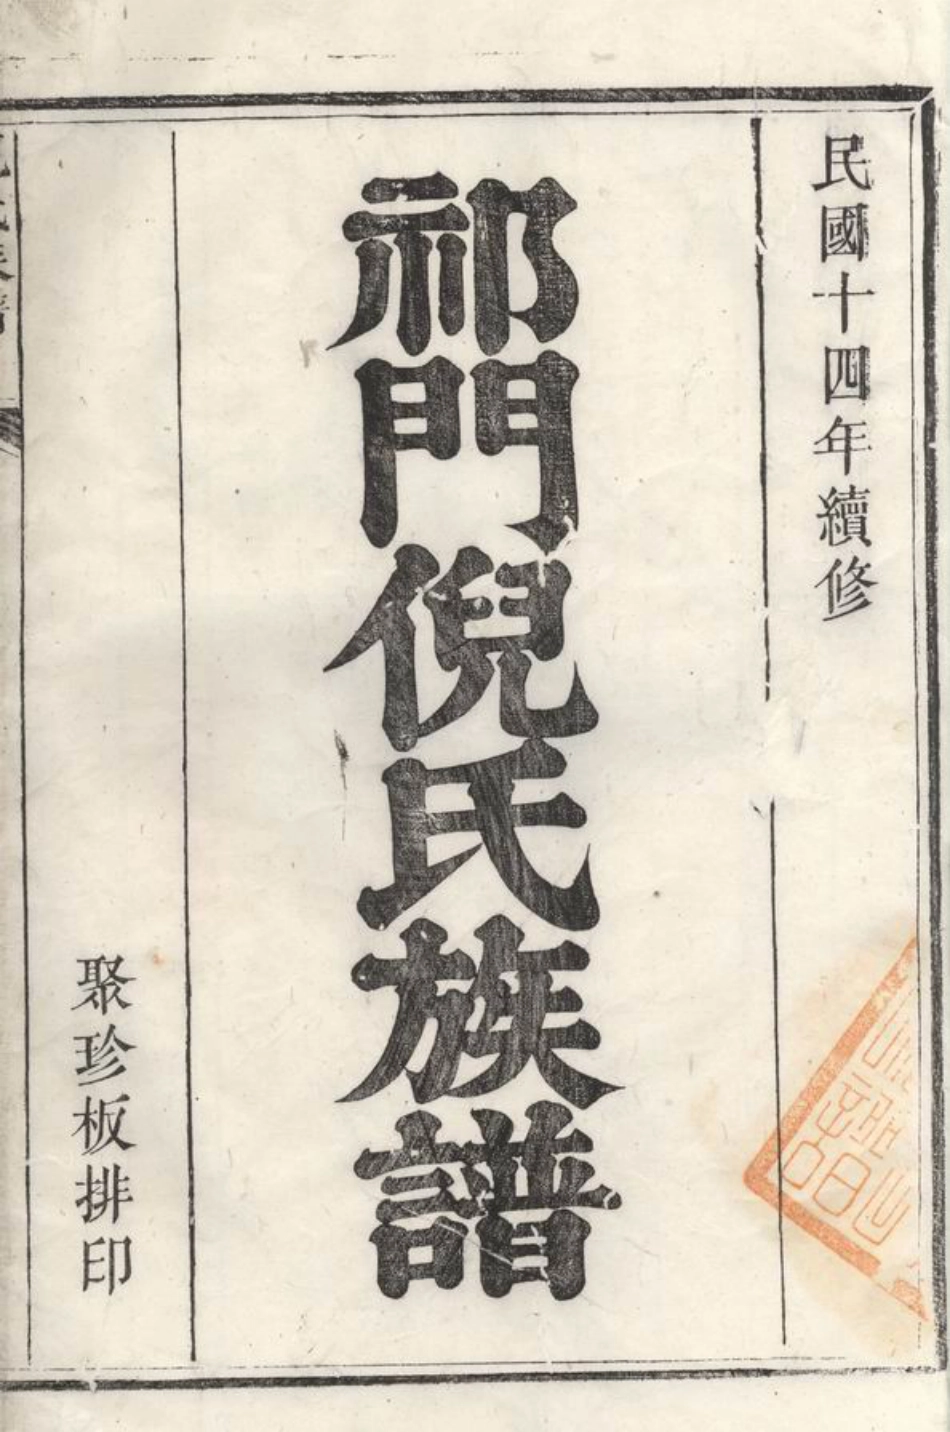 民國十四年續修
祁門倪氏族譜
聚珍板排印
氏族譜